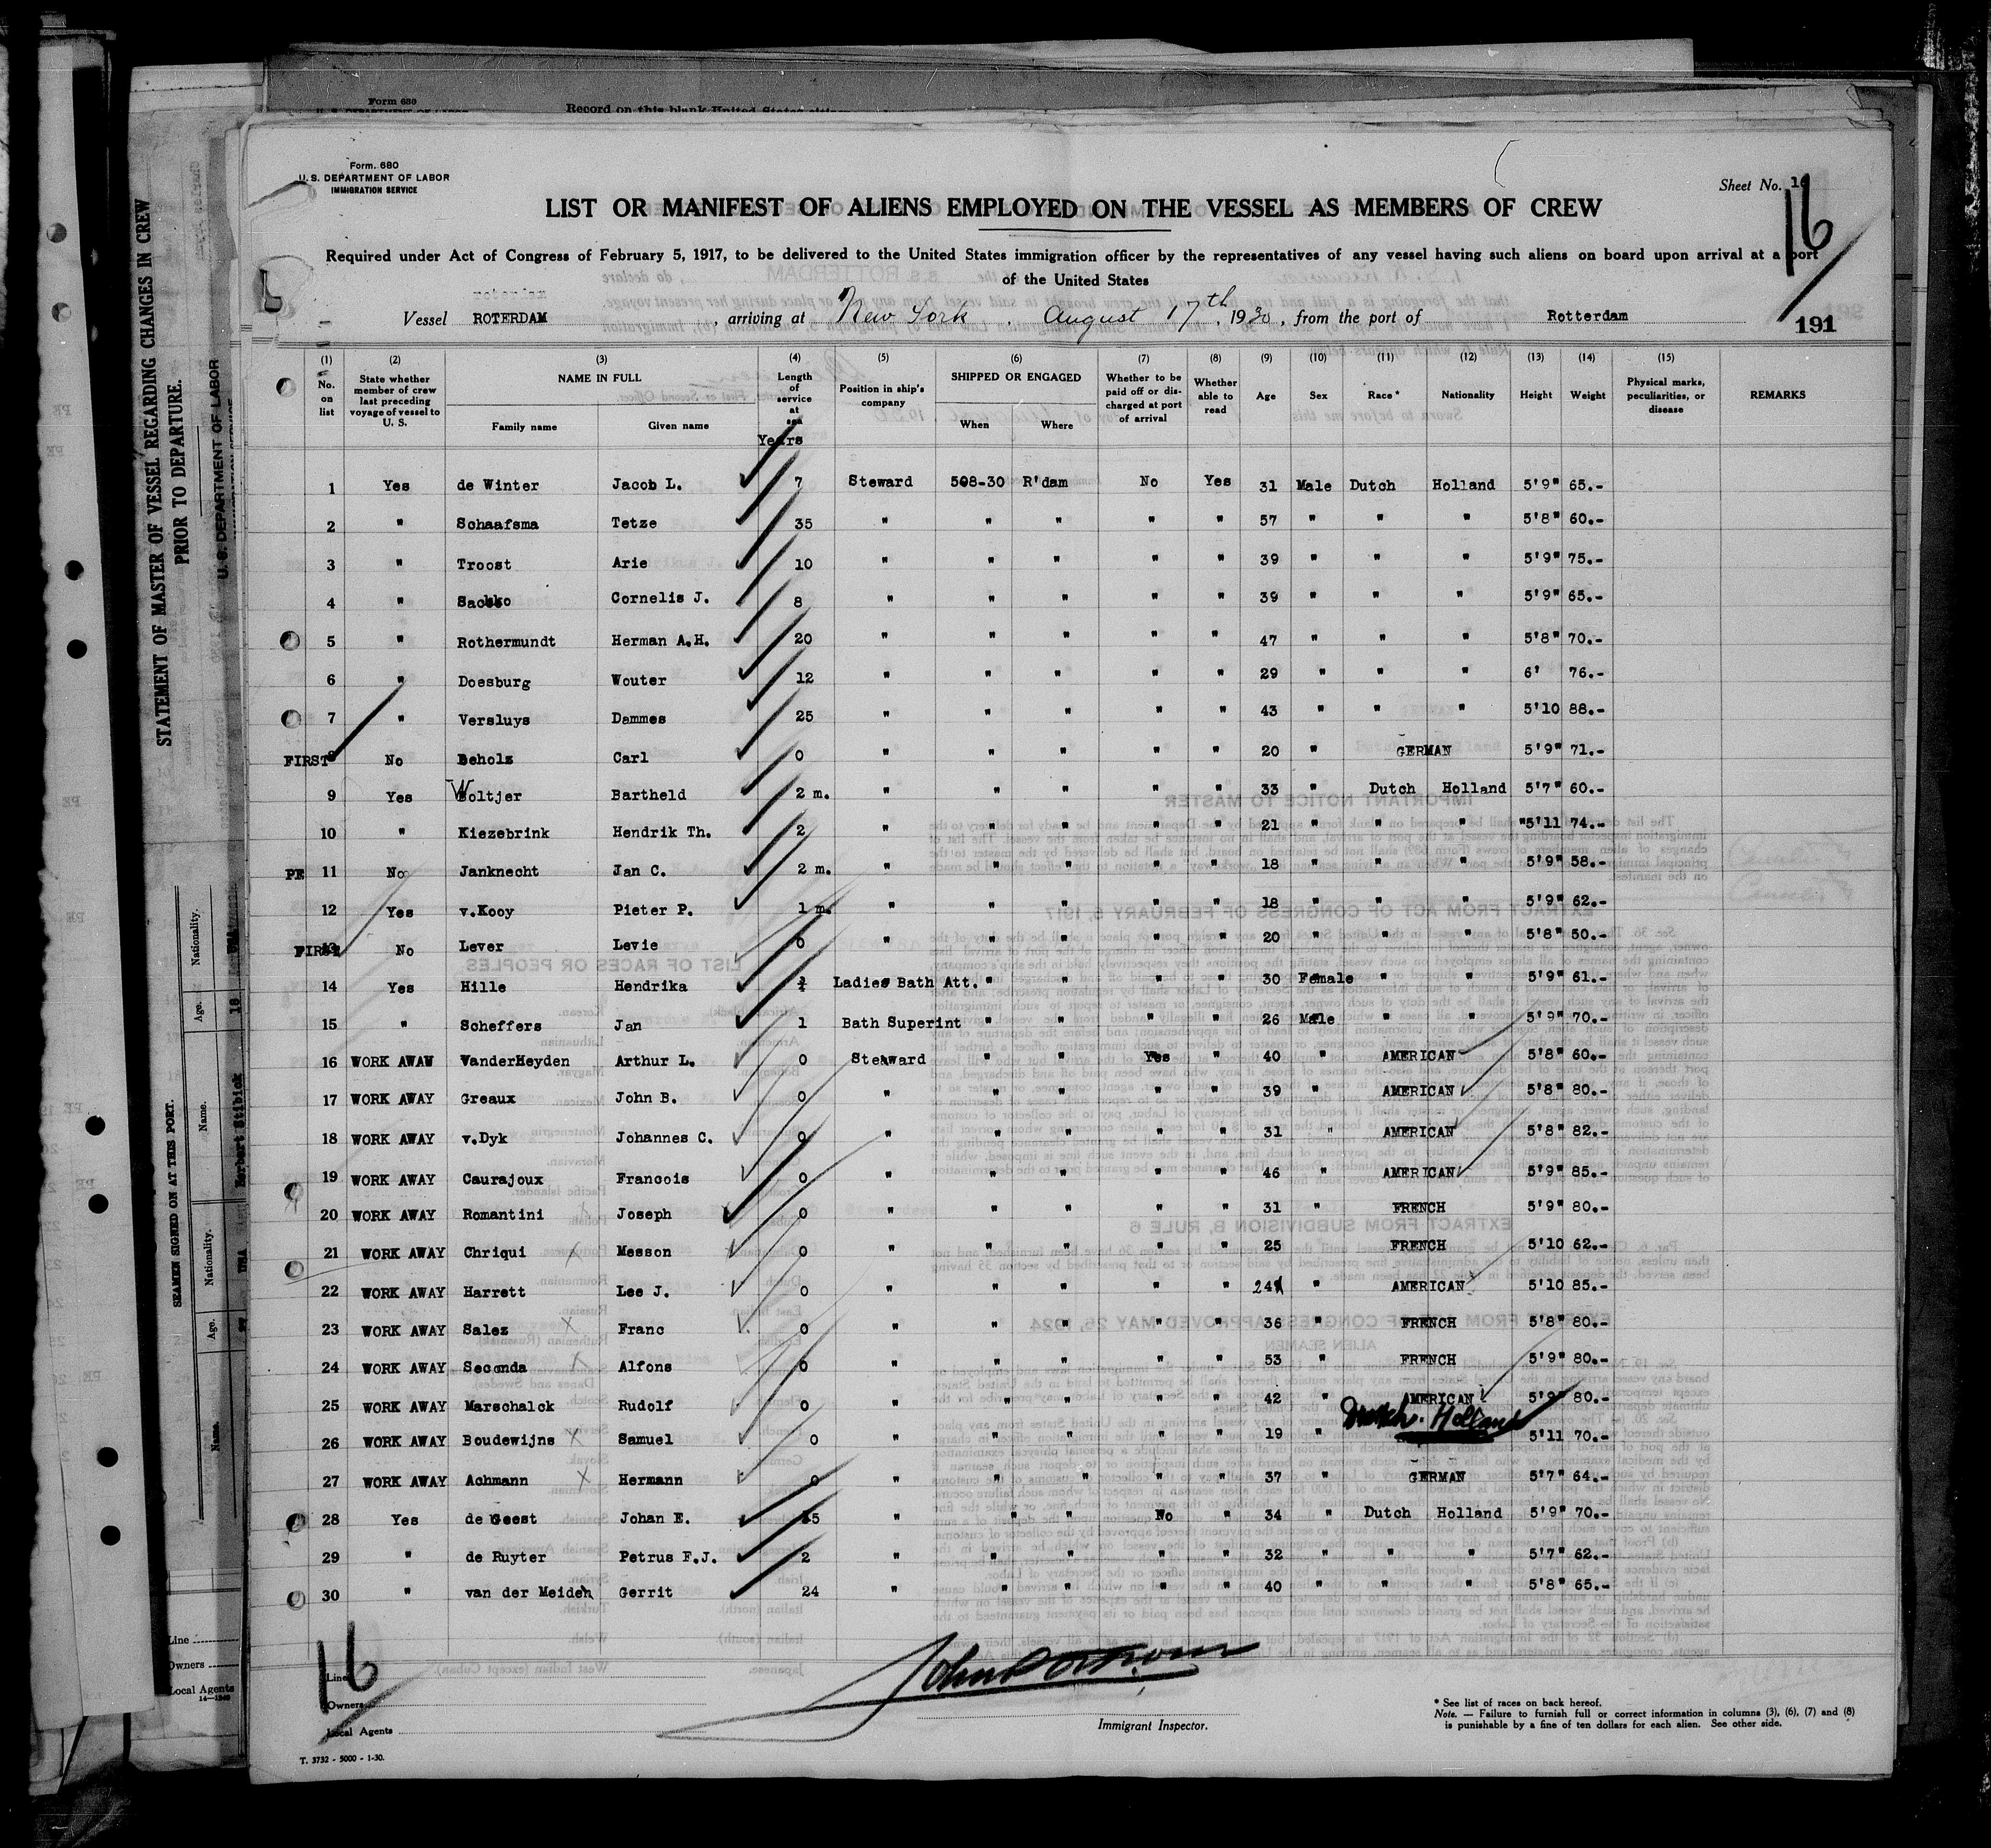 Form 680
Record on this blank United States citizens
STATEMENT OF MASTER OF VESSEL REGARDING CHANGES IN CREW
PRIOR TO DEPARTURE.
U. S. DEPARTMENT OF LABOR
SEAMEN SIGNED ON AT THIS PORT.
Nationality. Age. Name. Nationality. Age. Name.
USA 16 Herbert Stibick USA
Line
Owners
Local Agents
14—1240
Form. 680
U. S. DEPARTMENT OF LABOR
IMMIGRATION SERVICE
Sheet No. 16
16
LIST OR MANIFEST OF ALIENS EMPLOYED ON THE VESSEL AS MEMBERS OF CREW
Required under Act of Congress of February 5, 1917, to be delivered to the United States immigration officer by the representatives of any vessel having such aliens on board upon arrival at a port
of the United States
Vessel ROTERDAM , arriving at New York , August 17th , 1930 , from the port of Rotterdam
191
(1) (2) (3) (4) (5) (6) (7) (8) (9) (10) (11) (12) (13) (14) (15)
No. on list State whether member of crew last preceding voyage of vessel to U. S. NAME IN FULL Family name Given name Length of service at sea Years Position in ship's company SHIPPED OR ENGAGED When Where Whether to be paid off or discharged at port of arrival Whether able to read Age Sex Race * Nationality Height Weight Physical marks, peculiarities, or disease REMARKS
1 Yes de Winter Jacob L. 7 Steward 508-30 R'dam No Yes 31 Male Dutch Holland 5'9" 65.-
2 " Schaafsma Tetze 35 " " " " " 57 " " " 5'8" 60.-
3 " Troost Arie 10 " " " " " 39 " " " 5'9" 75.-
4 " Cornelis J. 8 " " " " " 39 " " " 5'9" 65.-
5 " Rothermundt Herman A.H. 20 " " " " " 47 " " " 5'8" 70.-
6 " Doesburg Wouter 12 " " " " " 29 " " " 6' 76.-
7 " Versluys Dammes 25 " " " " " 43 " " " 5'10 88.-
FIRST 8 No Beholz Carl 0 " " " " " 20 " GERMAN 5'9" 71.-
9 Yes Woltjer Bartheld 2 m. " " " " " 33 " Dutch Holland 5'7" 60.-
10 " Kiezebrink Hendrik Th. 2 " " " " " 21 " " " "5'11 74.-
PE 11 No Janknecht Jan C. 2 m. " " " " " 18 " " " 5'9" 58.-
12 Yes v.Kooy Pieter P. 1 m. " " " " " 18 " " " 5'9" 62.-
FIRST 13 No Lever Levie 0 " " " " " 20 " " " 5'8" 50.-
14 Yes Hille Hendrika Ladies Bath Att. " " " " 30 Female " " 5'9" 61.-
15 " Scheffers Jan 1 Bath Superint " " " " 26 Male " " 5'9" 70.-
16 WORK AWAW VanderHeyden Arthur L. 0 Steaward " " Yes " 40 " AMERICAN 5'8" 60.-
17 WORK AWAY Greaux John B. 0 " " " " " 39 " AMERICAN 5'8" 80.-
18 WORK AWAY v.Dyk Johannes C. 0 " " " " " 31 " AMERICAN 5'8" 82.-
19 WORK AWAY Caurajoux Francois 0 " " " " " 46 " AMERICAN 5'9" 85.-
20 WORK AWAY Romantini Joseph 0 " " " " " 31 " FRENCH 5'9" 80.-
21 WORK AWAY Chriqui Messon 0 " " " " " 25 " FRENCH 5'10 62.-
22 WORK AWAY Harrett Lee J. 0 " " " " " 24 " AMERICAN 5'10 85.-
23 WORK AWAY Salez Franc 0 " " " " " 36 " FRENCH 5'8" 80.-
24 WORK AWAY Seconda Alfons 0 " " " " " 53 " FRENCH 5'9" 80.-
25 WORK AWAY Marschalck Rudolf 0 " " " " " 42 " AMERICAN 5'9" 80.-
26 WORK AWAY Boudewijns Samuel 0 " " " " " 19 " Dutch. Holland 5'11 70.-
27 WORK AWAY Achmann Hermann 0 " " " " " 37 " GERMAN 5'7" 64.-
28 Yes de Geest Johan E. 15 " " " No " 34 " Dutch Holland 5'9" 70.-
29 " de Ruyter Petrus F.J. 2 " " " " " 32 " " " 5'7" 62.-
30 " van der Meiden Gerrit 24 " " " " " 40 " " " 5'8" 65.-
16
Line
Owners
Local Agents
Immigrant Inspector.
* See list of races on back hereof.
Note. — Failure to furnish full or correct information in columns (3), (6), (7) and (8)
is punishable by a fine of ten dollars for each alien. See other side.
T. 3732 - 5000 - 1-30.